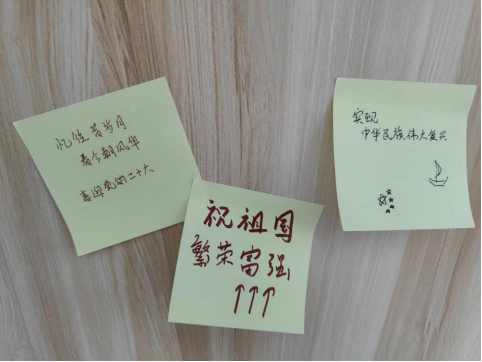 忆往昔岁月
看今朝风华
喜迎党的二十大
祝祖国
繁荣富强
↑↑↑
实现
中华民族伟大复兴